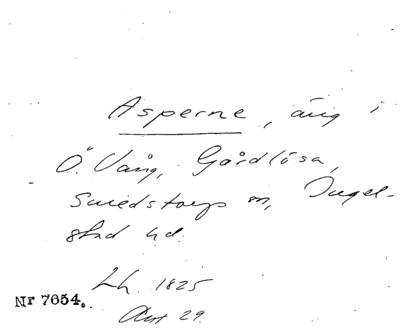 Asperne, äng i
Ö. Vång, Gårdlösa,
Smedstorps sn, Ingel-
stad hd.
Lh. 1825
Nr 7654.
Akt 29.